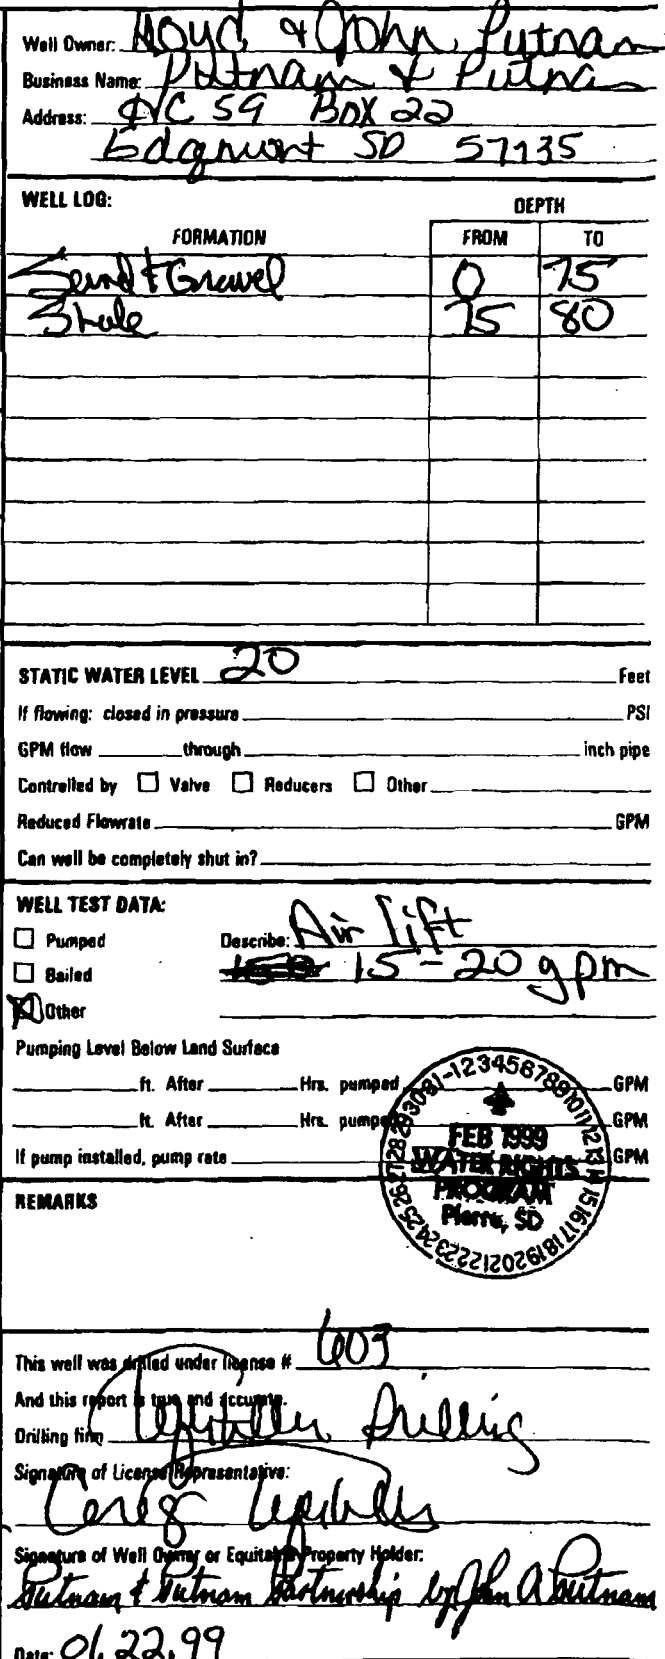 Well Owner: Lloyd & John Putnam
Business Name: Putnam & Putnam
Address: HC 59 Box 22
Edgemont SD 57735
WELL LOG:
DEPTH
FORMATION FROM TO
Sand & Gravel 0 75
Shale 75 80
STATIC WATER LEVEL 20 Feet
If flowing: closed in pressure PSI
GPM flow through inch pipe
Controlled by ☐ Valve ☐ Reducers ☐ Other
Reduced Flowrate GPM
Can well be completely shut in?
WELL TEST DATA:
☐ Pumped Describe: Air lift
☐ Bailed 15-20 gpm
☒ Other
Pumping Level Below Land Surface
ft. After Hrs. pumped GPM
ft. After Hrs. pumped GPM
If pump installed, pump rate GPM
FEB 1999
WATER RIGHTS
PROGRAM
Pierre, SD
REMARKS
This well was drilled under license # 603
And this report is true and accurate.
Drilling firm Drilling
Signature of License Representative:
Signature of Well Owner or Equitable Property Holder:
Putnam & Putnam Partnership by John A Putnam
Date: 01.22.99